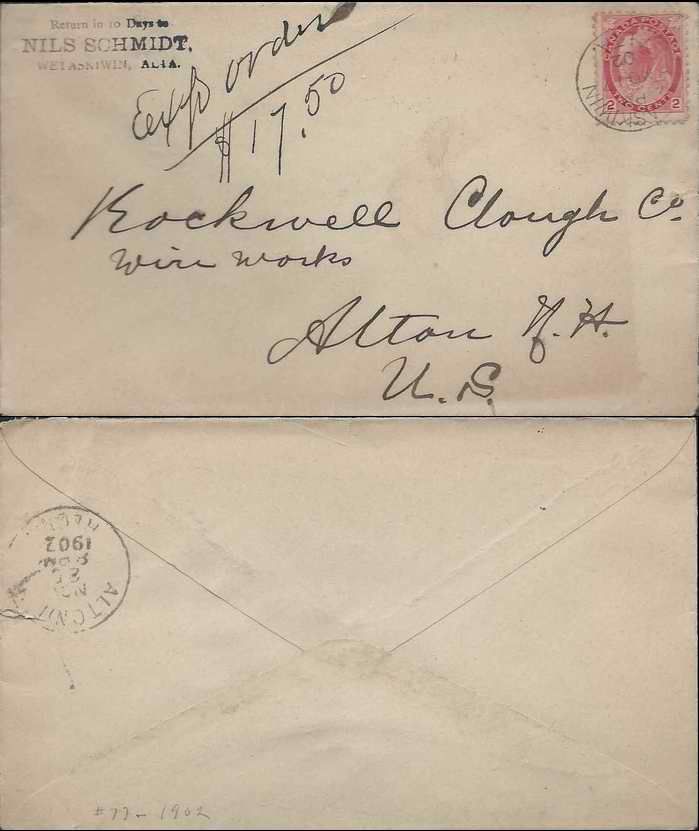 Return in 10 Days to
NILS SCHMIDT,
WETASKIWIN, ALTA.
Exp order
$17.50
CANADA POSTAGE
2 TWO CENTS 2
SKIWIN
02
Rockwell Clough Co.
Wire Works
Alton N. H.
U. S.
ALTON
1902
#77-1902